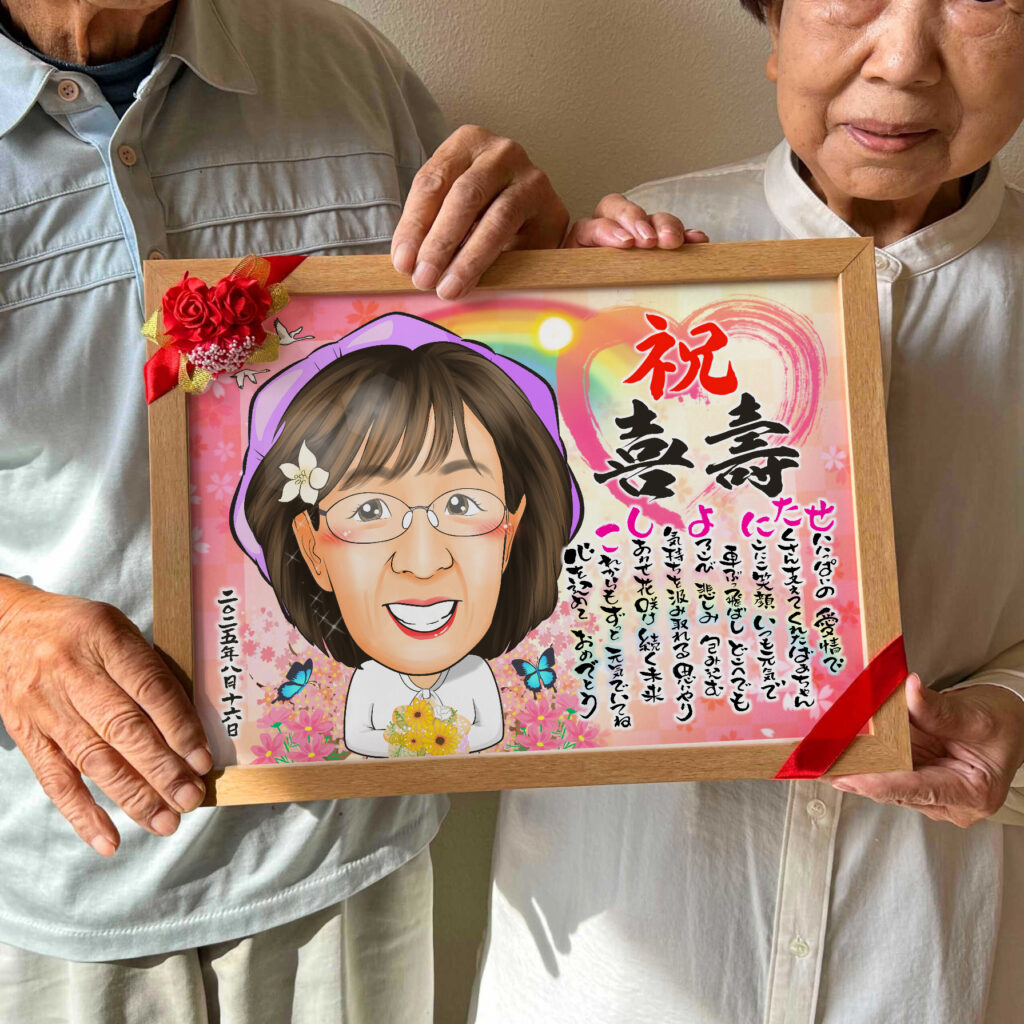 祝
喜壽
せいいっぱいの 愛情で
たくさん支えてくれたばあちゃん
にこにこ笑顔 いつも元気で
車ぶっ飛ばし どこへでも
よろこび 悲しみ 包み込む
気持ちを汲み取れる 思いやり
しあわせ花咲け 続く未来
これからもずっと元気でいてね
心を込めて おめでとう
二〇二五年八月十六日